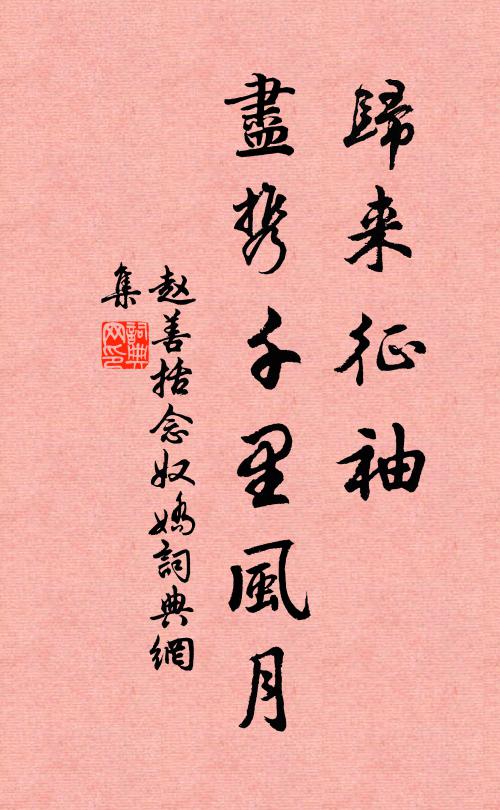 歸来征袖
盡携千里風月
赵善括念奴嬌詞典網
集
詞典
网印